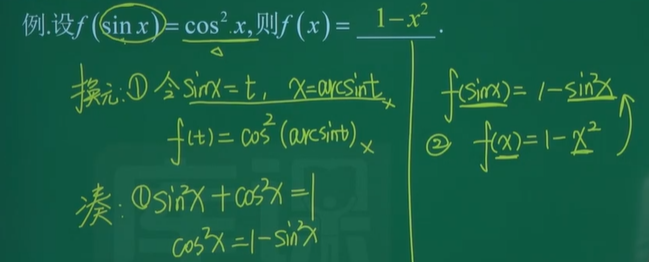 例.设f(sin x)=cos²x,则f(x)= 1−x² .
换元:①令sinx=t, x=arcsint ×
f(t)=cos²(arcsint) ×
凑:①sin²x+cos²x=1
cos²x=1−sin²x
f(sinx)=1−sin²x
② f(x)=1−x²